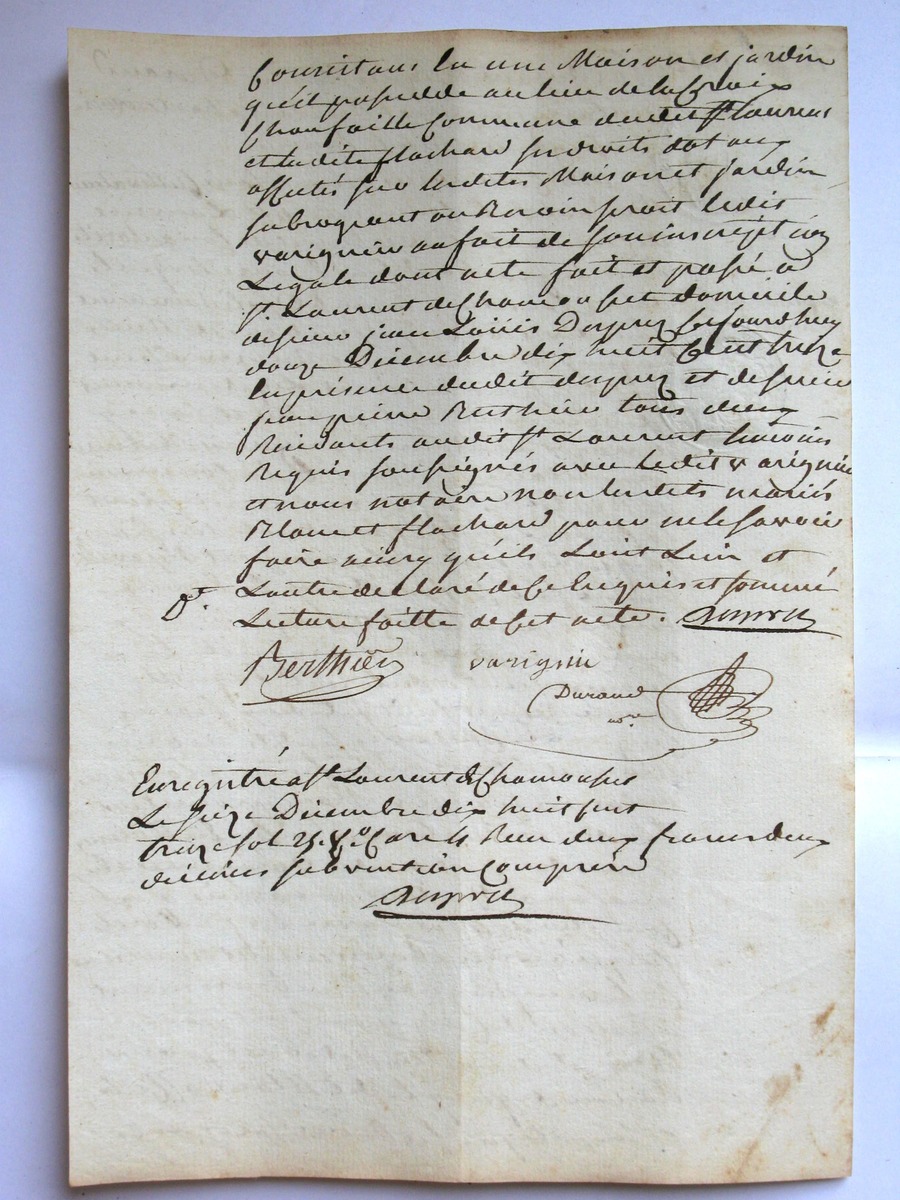 une Maison et jardin
qu'il possedde au lieu de la Croix
Chanfaille Commune dudit st Laurent
et ladite flachard ses droits dotaux
affectés sur lesdites Maison et jardin
subrogeant au Besoin ledit
varignier au fait de son inscription
Legale dont acte fait et passé a
st. Laurent de Chamousset domicile
de sieur jean Louis Duprez Ce jourd'huy
douze Décembre dix huit Cent treize
En présence dudit duprez et de sieur
jean pierre Berthier tous deux
Residants audit st Laurent temoins
Requis soussignés avec ledit varignier
et nous notaire non lesdits mariés
Blanc et flachard pour ne le savoir
faire ainsy qu'ils L'ont L'un et
L'autre declaré de Ce Enquis et sommé
Dt. Lecture faitte de Cet acte.
Berthier varignier
Durand
nore
Enregistré a st Laurent de Chamousset
Le seize Décembre dix huit Cent
treize fol 25. Vo. Case 4 Reçu deux francs deux
décimes subvention Comprise